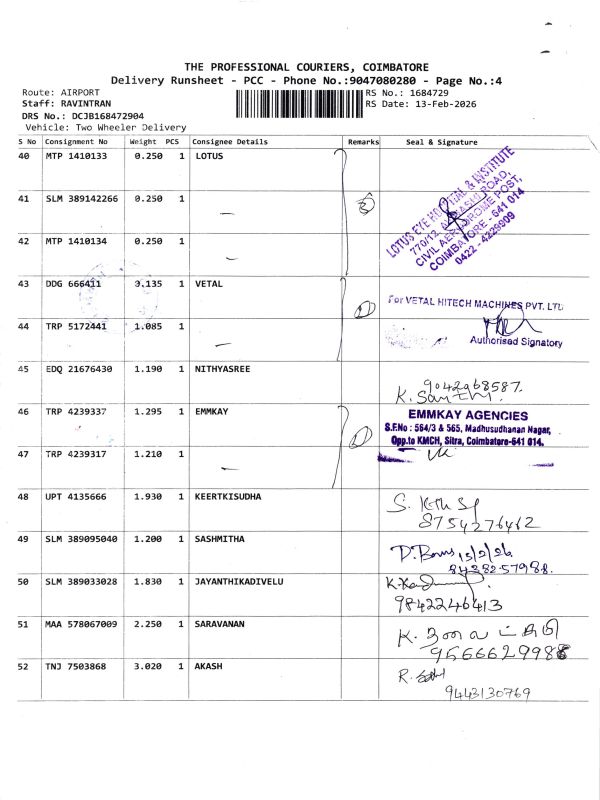 THE PROFESSIONAL COURIERS, COIMBATORE
Delivery Runsheet - PCC - Phone No.:9047080280 - Page No.:4
Route: AIRPORT
Staff: RAVINTRAN
DRS No.: DCJB168472904
Vehicle: Two Wheeler Delivery
RS No.: 1684729
RS Date: 13-Feb-2026
S No Consignment No Weight PCS Consignee Details Remarks Seal & Signature
40 MTP 1410133 0.250 1 LOTUS
41 SLM 389142266 0.250 1
42 MTP 1410134 0.250 1
LOTUS EYE & INSTITUTE
770/12, ROAD,
CIVIL AERODROME POST,
COIMBATORE - 641 014
0422 - 4229909
43 DDG 666411 3.135 1 VETAL
For VETAL HITECH MACHINES PVT. LTD
44 TRP 5172441 1.085 1
Authorised Signatory
45 EDQ 21676430 1.190 1 NITHYASREE
9042968587.
46 TRP 4239337 1.295 1 EMMKAY
EMMKAY AGENCIES
S.F.No : 564/3 & 565, Madhusudhanan Nagar,
Opp.to KMCH, Sitra, Coimbatore-641 014.
47 TRP 4239317 1.210 1
48 UPT 4135666 1.930 1 KEERTKISUDHA
8754276462
49 SLM 389095040 1.200 1 SASHMITHA
13/2/26
8438257988.
50 SLM 389033028 1.830 1 JAYANTHIKADIVELU
9842246413
51 MAA 578067009 2.250 1 SARAVANAN
52 TNJ 7503868 3.020 1 AKASH
9443130769